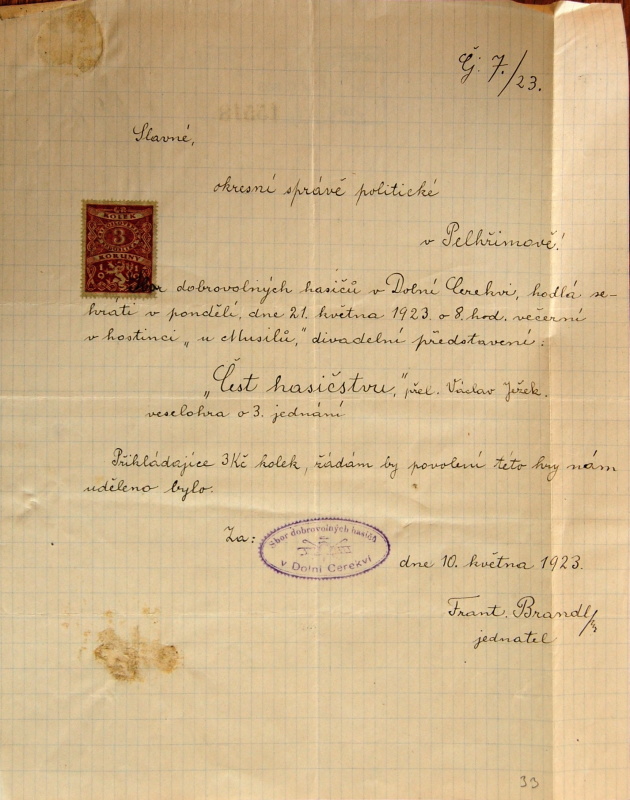 Čj. 7./23.
Slavné,
okresní správě politické
v Pelhřimově!
KOLEK
3
KORUNY
1919
Sbor dobrovolných hasičů v Dolní Cerekvi, hodlá se-
hráti v pondělí, dne 21. května 1923 o 8. hod. večerní
v hostinci „u Musilů," divadelní představení:
„Čest hasičstvu," přel. Václav Ježek.
veselohra o 3. jednání
Přikládajíce 3 Kč kolek, žádám by povolení této hry nám
uděleno bylo.
Za:
Sbor dobrovolných hasičů
v Dolní Cerekvi
dne 10. května 1923.
Frant. Brandl
jednatel
33